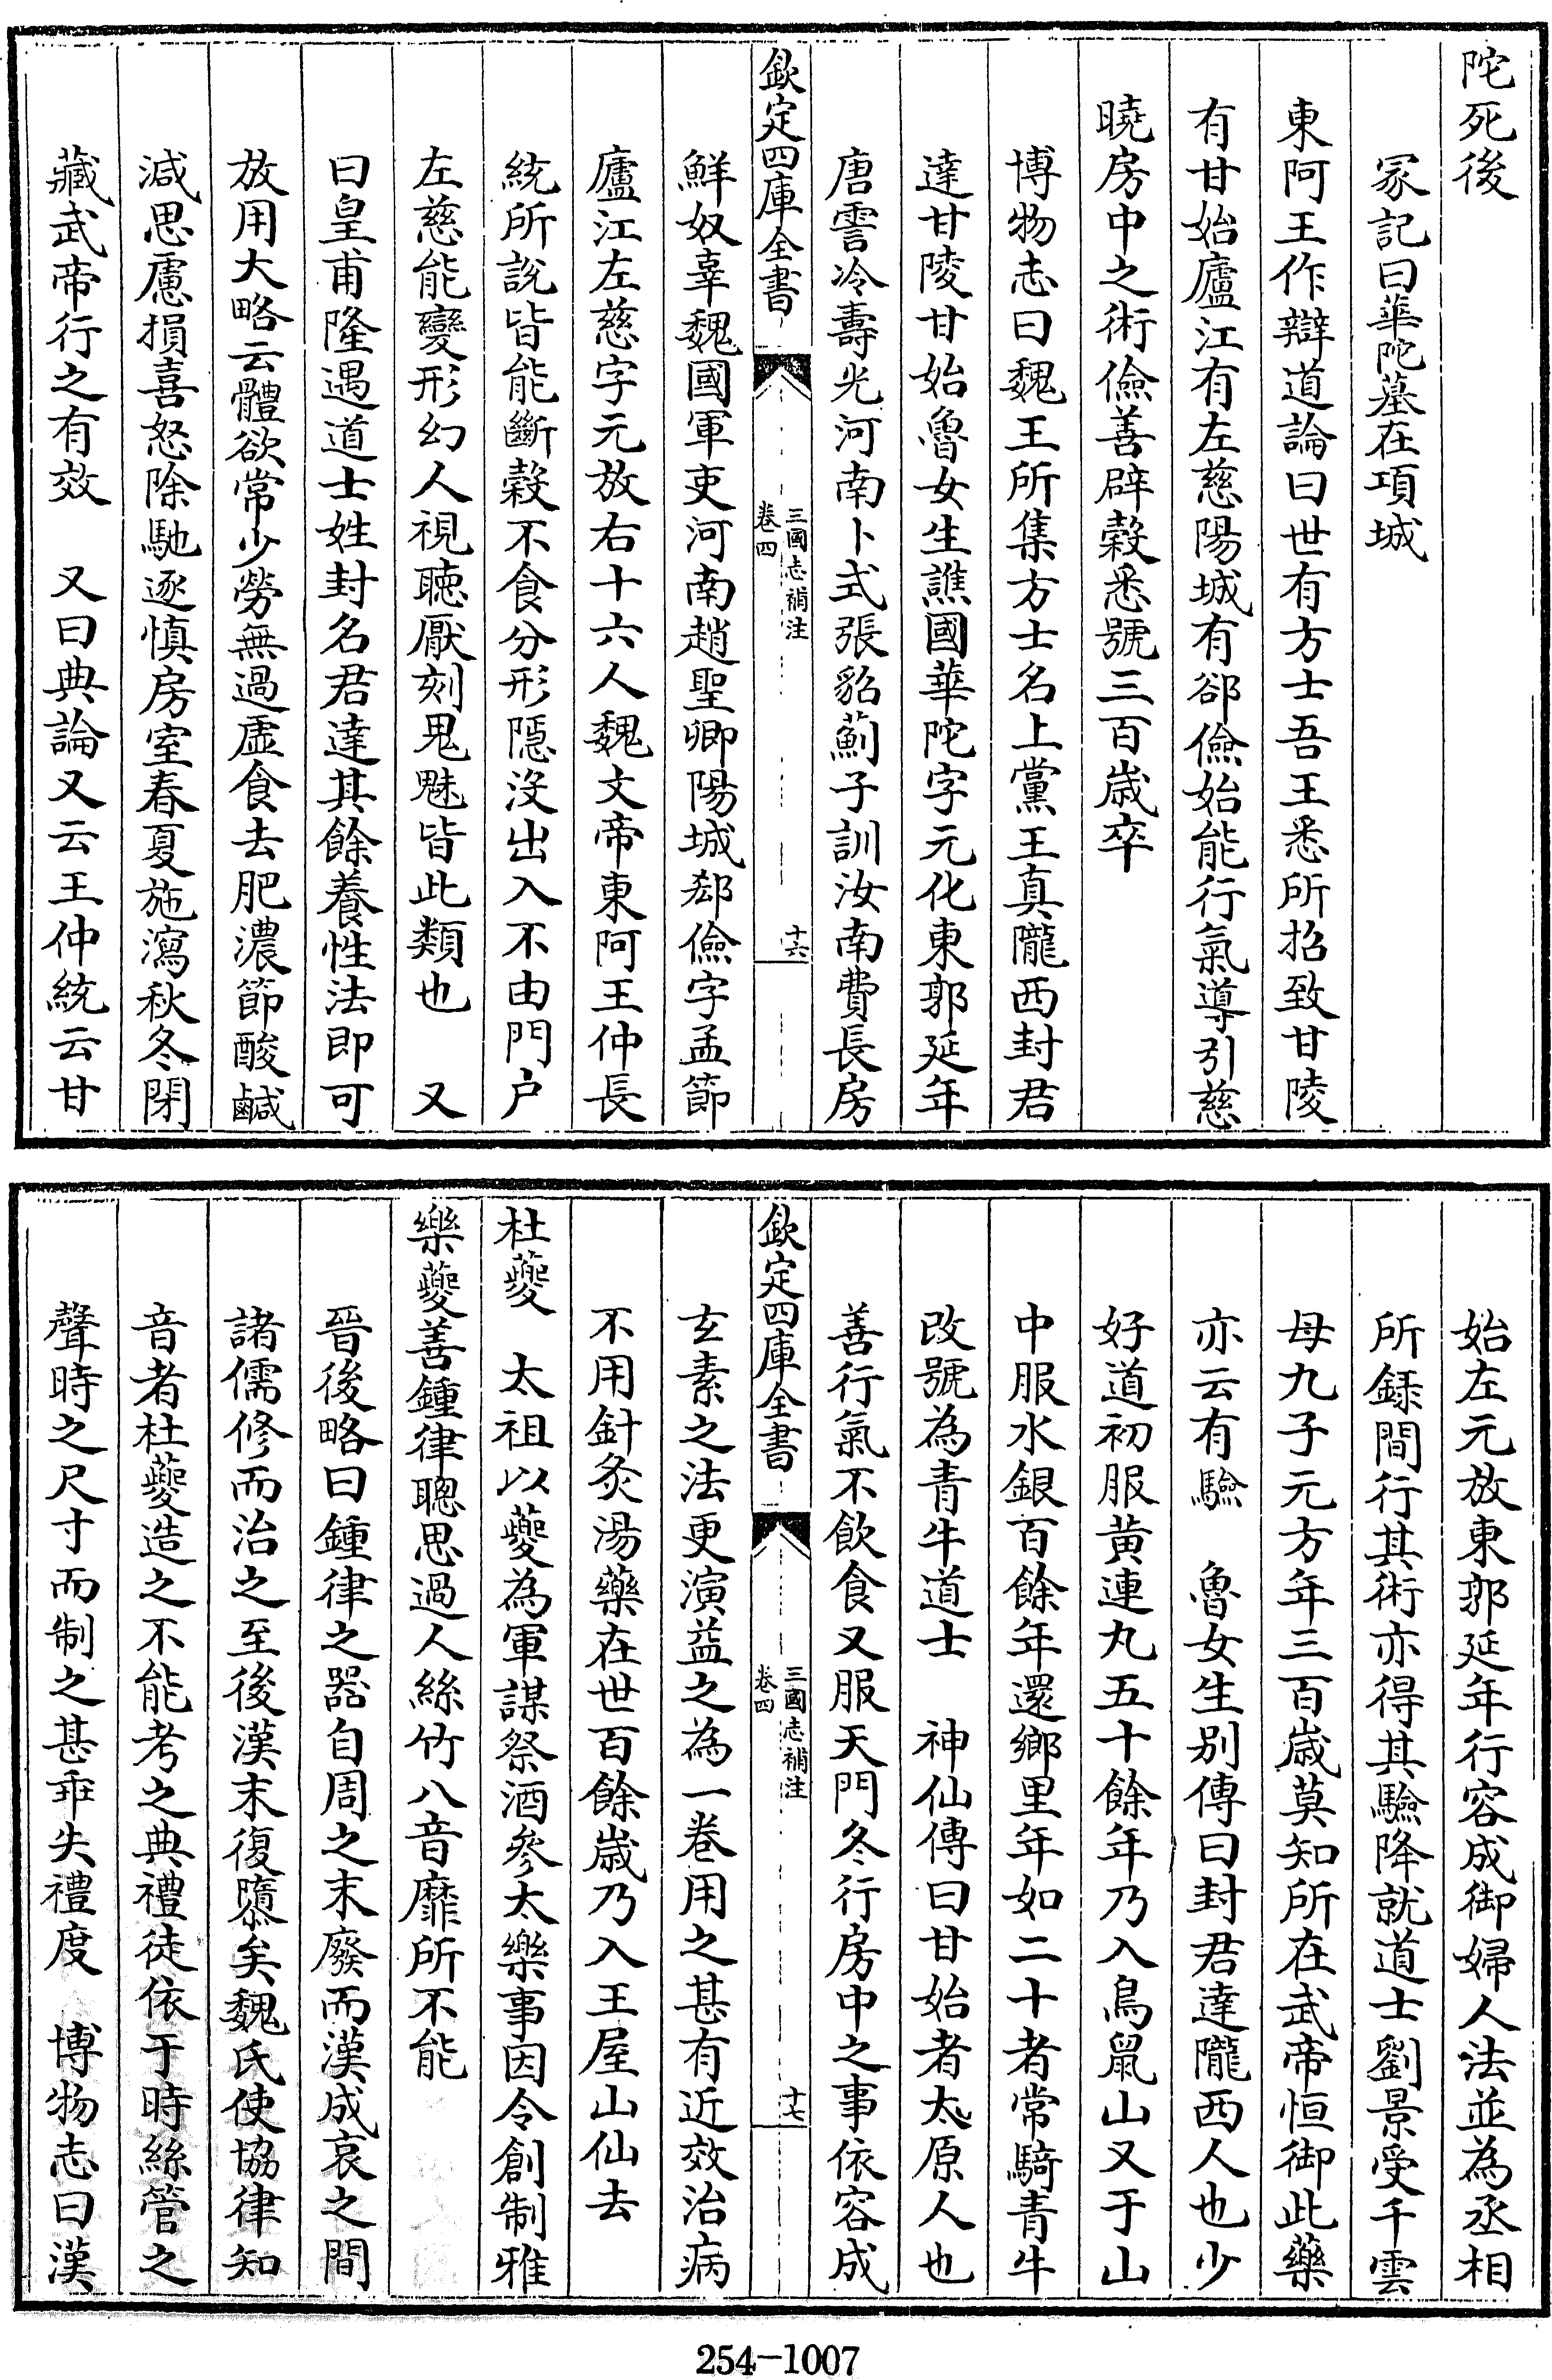 陀死後
冢記曰華陀墓在項城
東阿王作辯道論曰世有方士吾王悉所招致甘陵
有甘始廬江有左慈陽城有郤儉始能行氣導引慈
曉房中之術儉善辟穀悉號三百歲卒
博物志曰魏王所集方士名上黨王真隴西封君
達甘陵甘始魯女生譙國華陀字元化東郭延年
唐霅冷壽光河南卜式張貂薊子訓汝南費長房
欽定四庫全書
三國志補注
卷四
十六
鮮奴辜魏國軍吏河南趙聖卿陽城郄儉字孟節
廬江左慈字元放右十六人魏文帝東阿王仲長
統所説皆能斷穀不食分形隱没出入不由門户
左慈能變形幻人視聽厭刻鬼魅皆此類也　又
曰皇甫隆遇道士姓封名君達其餘養性法即可
放用大略云體欲常少勞無過虛食去肥濃節酸鹹
減思慮損喜怒除馳逐慎房室春夏施瀉秋冬閉
藏武帝行之有效　又曰典論又云王仲統云甘
始左元放東郭延年行容成御婦人法並為丞相
所録間行其術亦得其驗降就道士劉景受千雲
母九子元方年三百歲莫知所在武帝恒御此藥
亦云有驗　魯女生别傳曰封君達隴西人也少
好道初服黄連丸五十餘年乃入鳥鼠山又于山
中服水銀百餘年還鄉里年如二十者常騎青牛
改號為青牛道士　神仙傳曰甘始者太原人也
善行氣不飲食又服天門冬行房中之事依容成
欽定四庫全書
三國志補注
卷四
十七
玄素之法更演益之為一卷用之甚有近效治病
不用針灸湯藥在世百餘歲乃入王屋山仙去
杜夔　太祖以夔為軍謀祭酒參太樂事因令創制雅
樂夔善鍾律聰思過人絲竹八音靡所不能
晉後略曰鍾律之器自周之末廢而漢成哀之間
諸儒修而治之至後漢末復隳矣魏氏使協律知
音者杜夔造之不能考之典禮徒依于時絲管之
聲時之尺寸而制之甚乖失禮度　博物志曰漢
254-1007